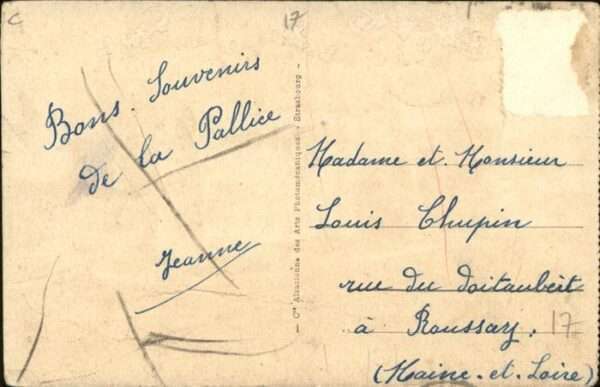 C
17
Bons Souvenirs
de la Pallice
Jeanne
— Cie Alsacienne des Arts Photomécaniques - Strasbourg —
Madame et Monsieur
Louis Chupin
rue du doitaubert
à Roussay.
17
(Maine-et-Loire)